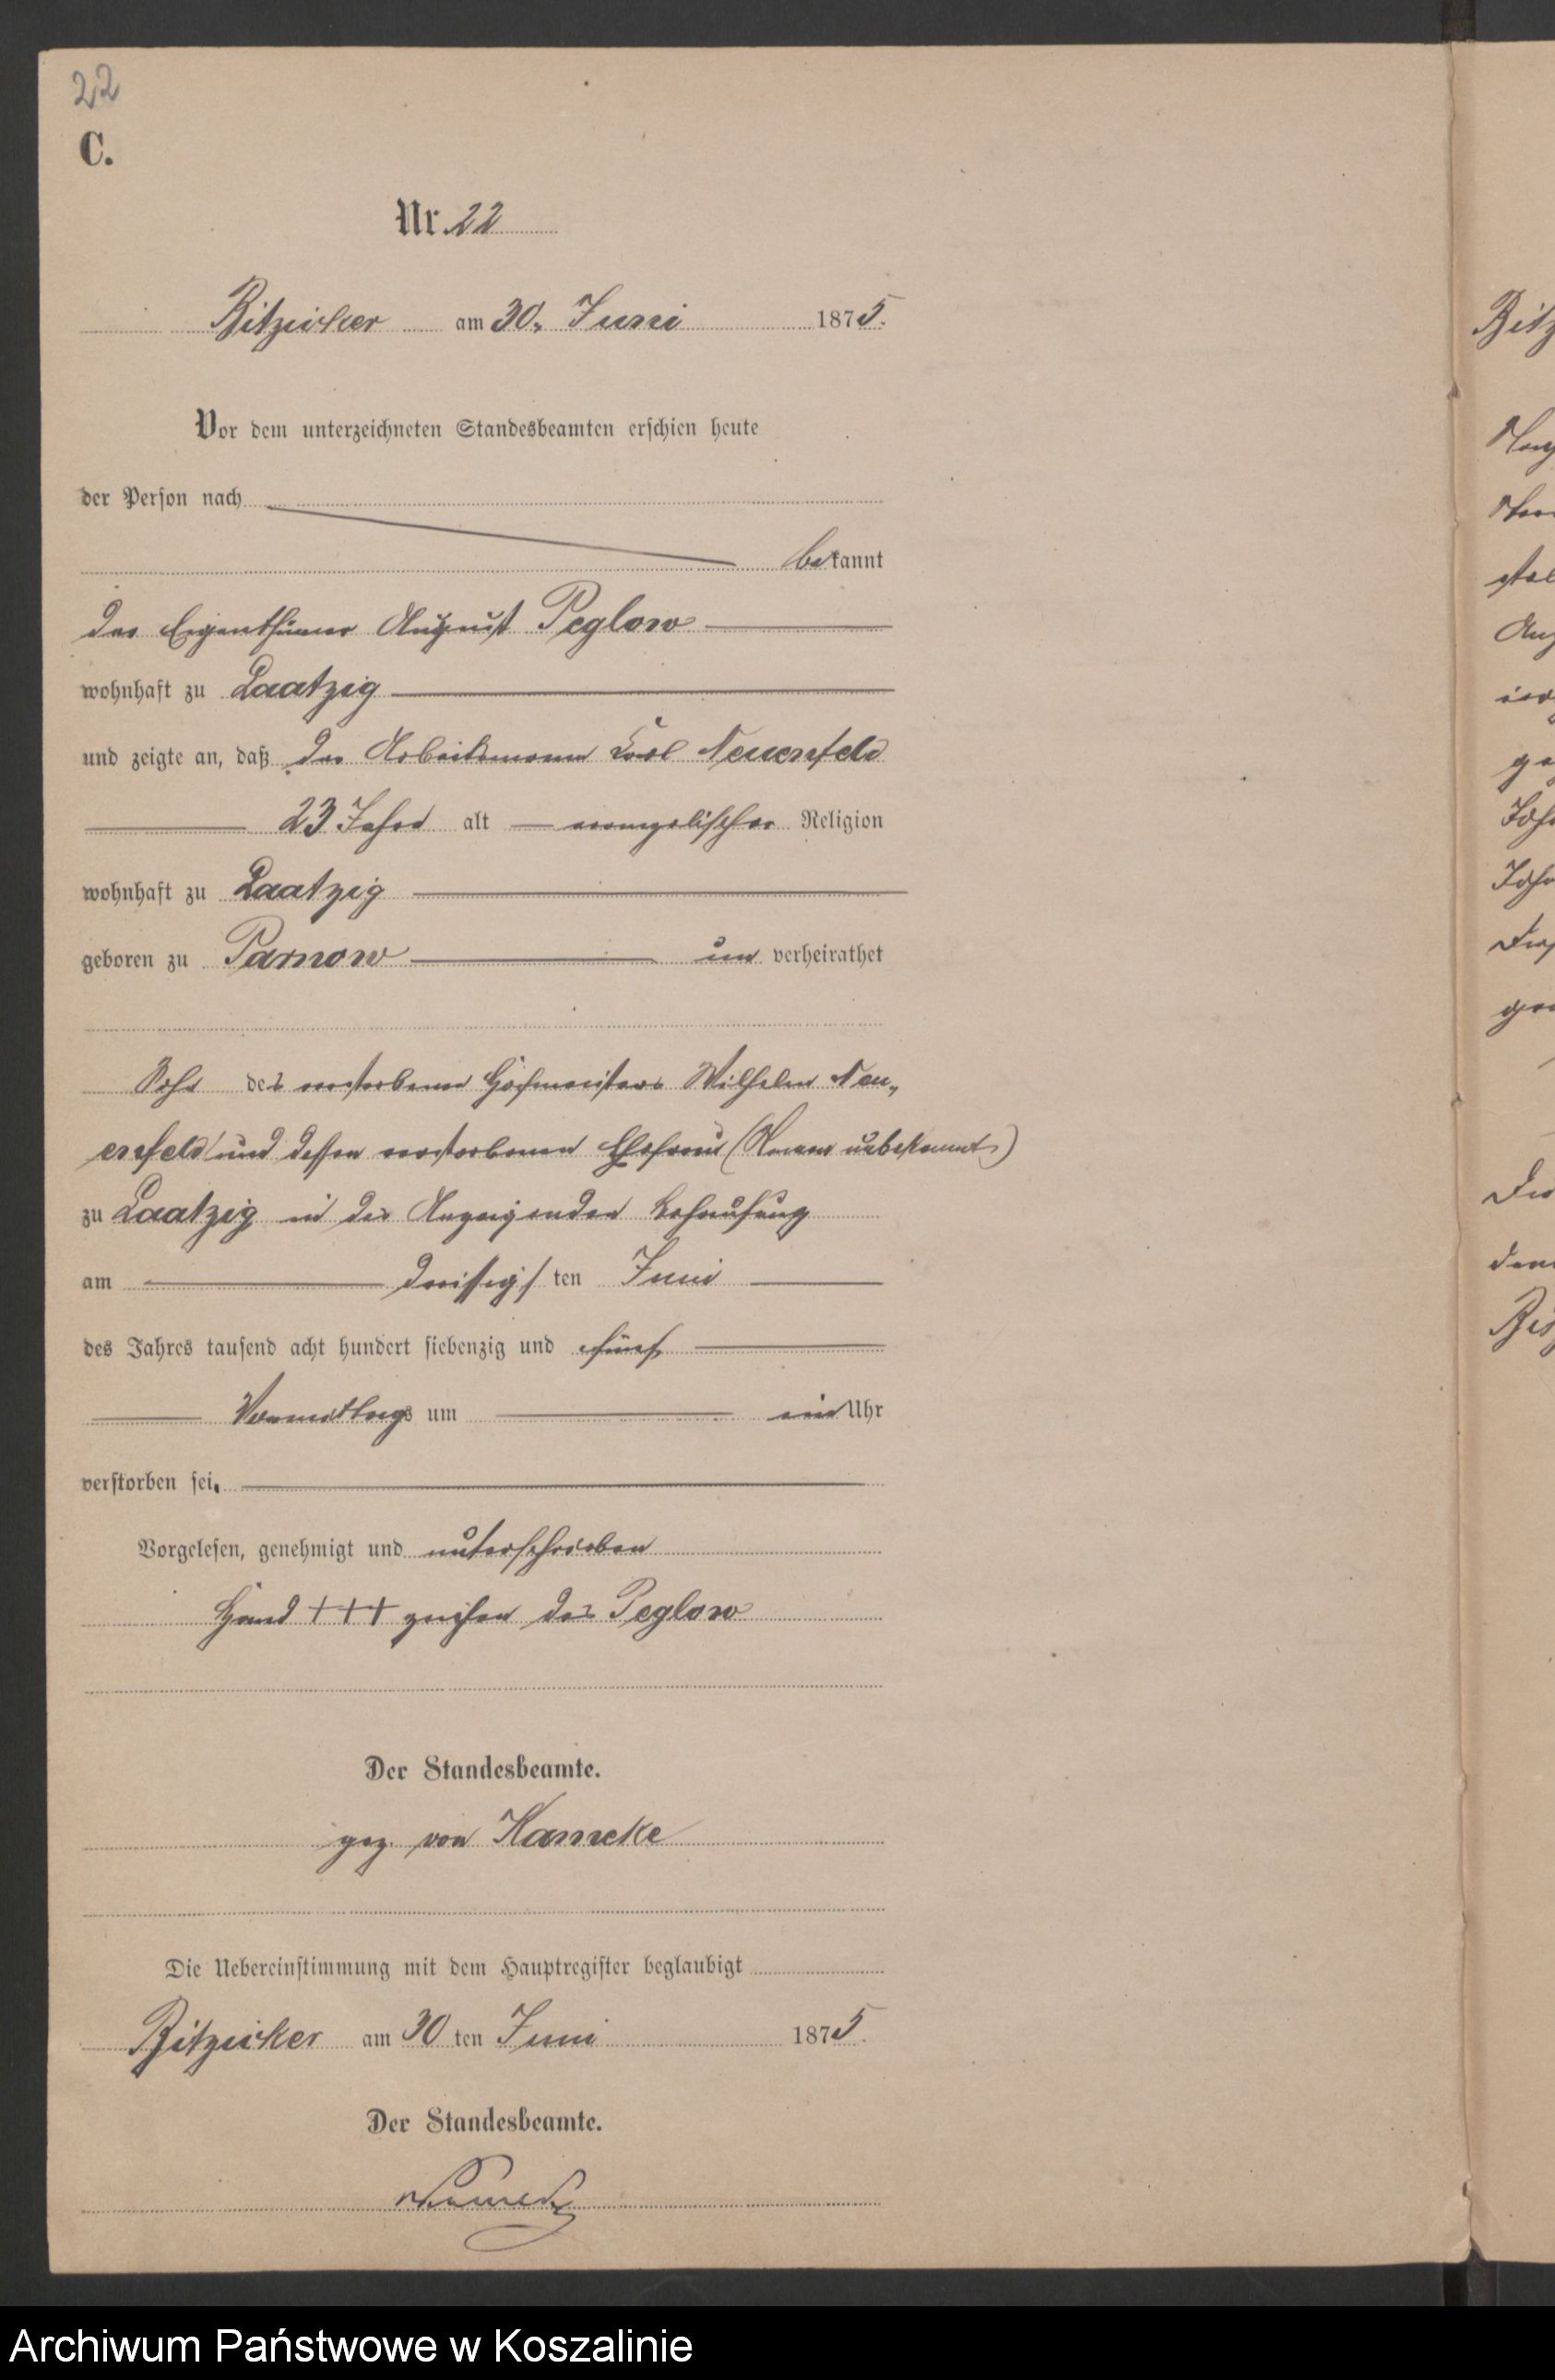 22
C.
Nr. 22
Bitzicker am 30. Juni 1875.
Vor dem unterzeichneten Standesbeamten erschien heute
der Person nach
bekannt
der Eigenthümer August Peglow
wohnhaft zu Laatzig
und zeigte an, daß der Arbeitsmann Karl Neuenfeld
23 Jahre alt evangelischer Religion
wohnhaft zu Laatzig
geboren zu Parnow un verheirathet
Sohn des verstorbenen Hofmeisters Wilhelm Neu„
enfeld und dessen verstorbenen Ehefrau (Namen unbekannt)
zu Laatzig in des Anzeigenden Behausung
am dreißigsten Juni
des Jahres tausend acht hundert siebenzig und fünf
Vormittags um ein Uhr
verstorben sei.
Vorgelesen, genehmigt und unterschrieben
Hand +++ zeichen des Peglow
Der Standesbeamte.
gez. von Kameke
Die Uebereinstimmung mit dem Hauptregister beglaubigt
Bitzicker am 30 ten Juni 1875.
Der Standesbeamte.
vKameke
Archiwum Państwowe w Koszalinie